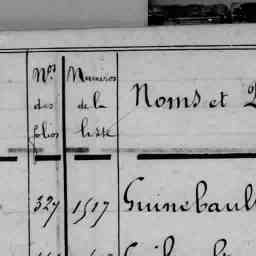 Nos des folios
Numéros de la liste
Noms et
327 1517 Guinebault